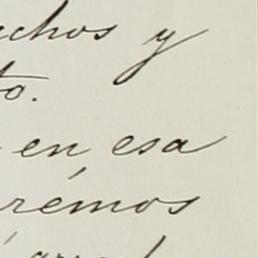 echos y
to.
en esa
rémos